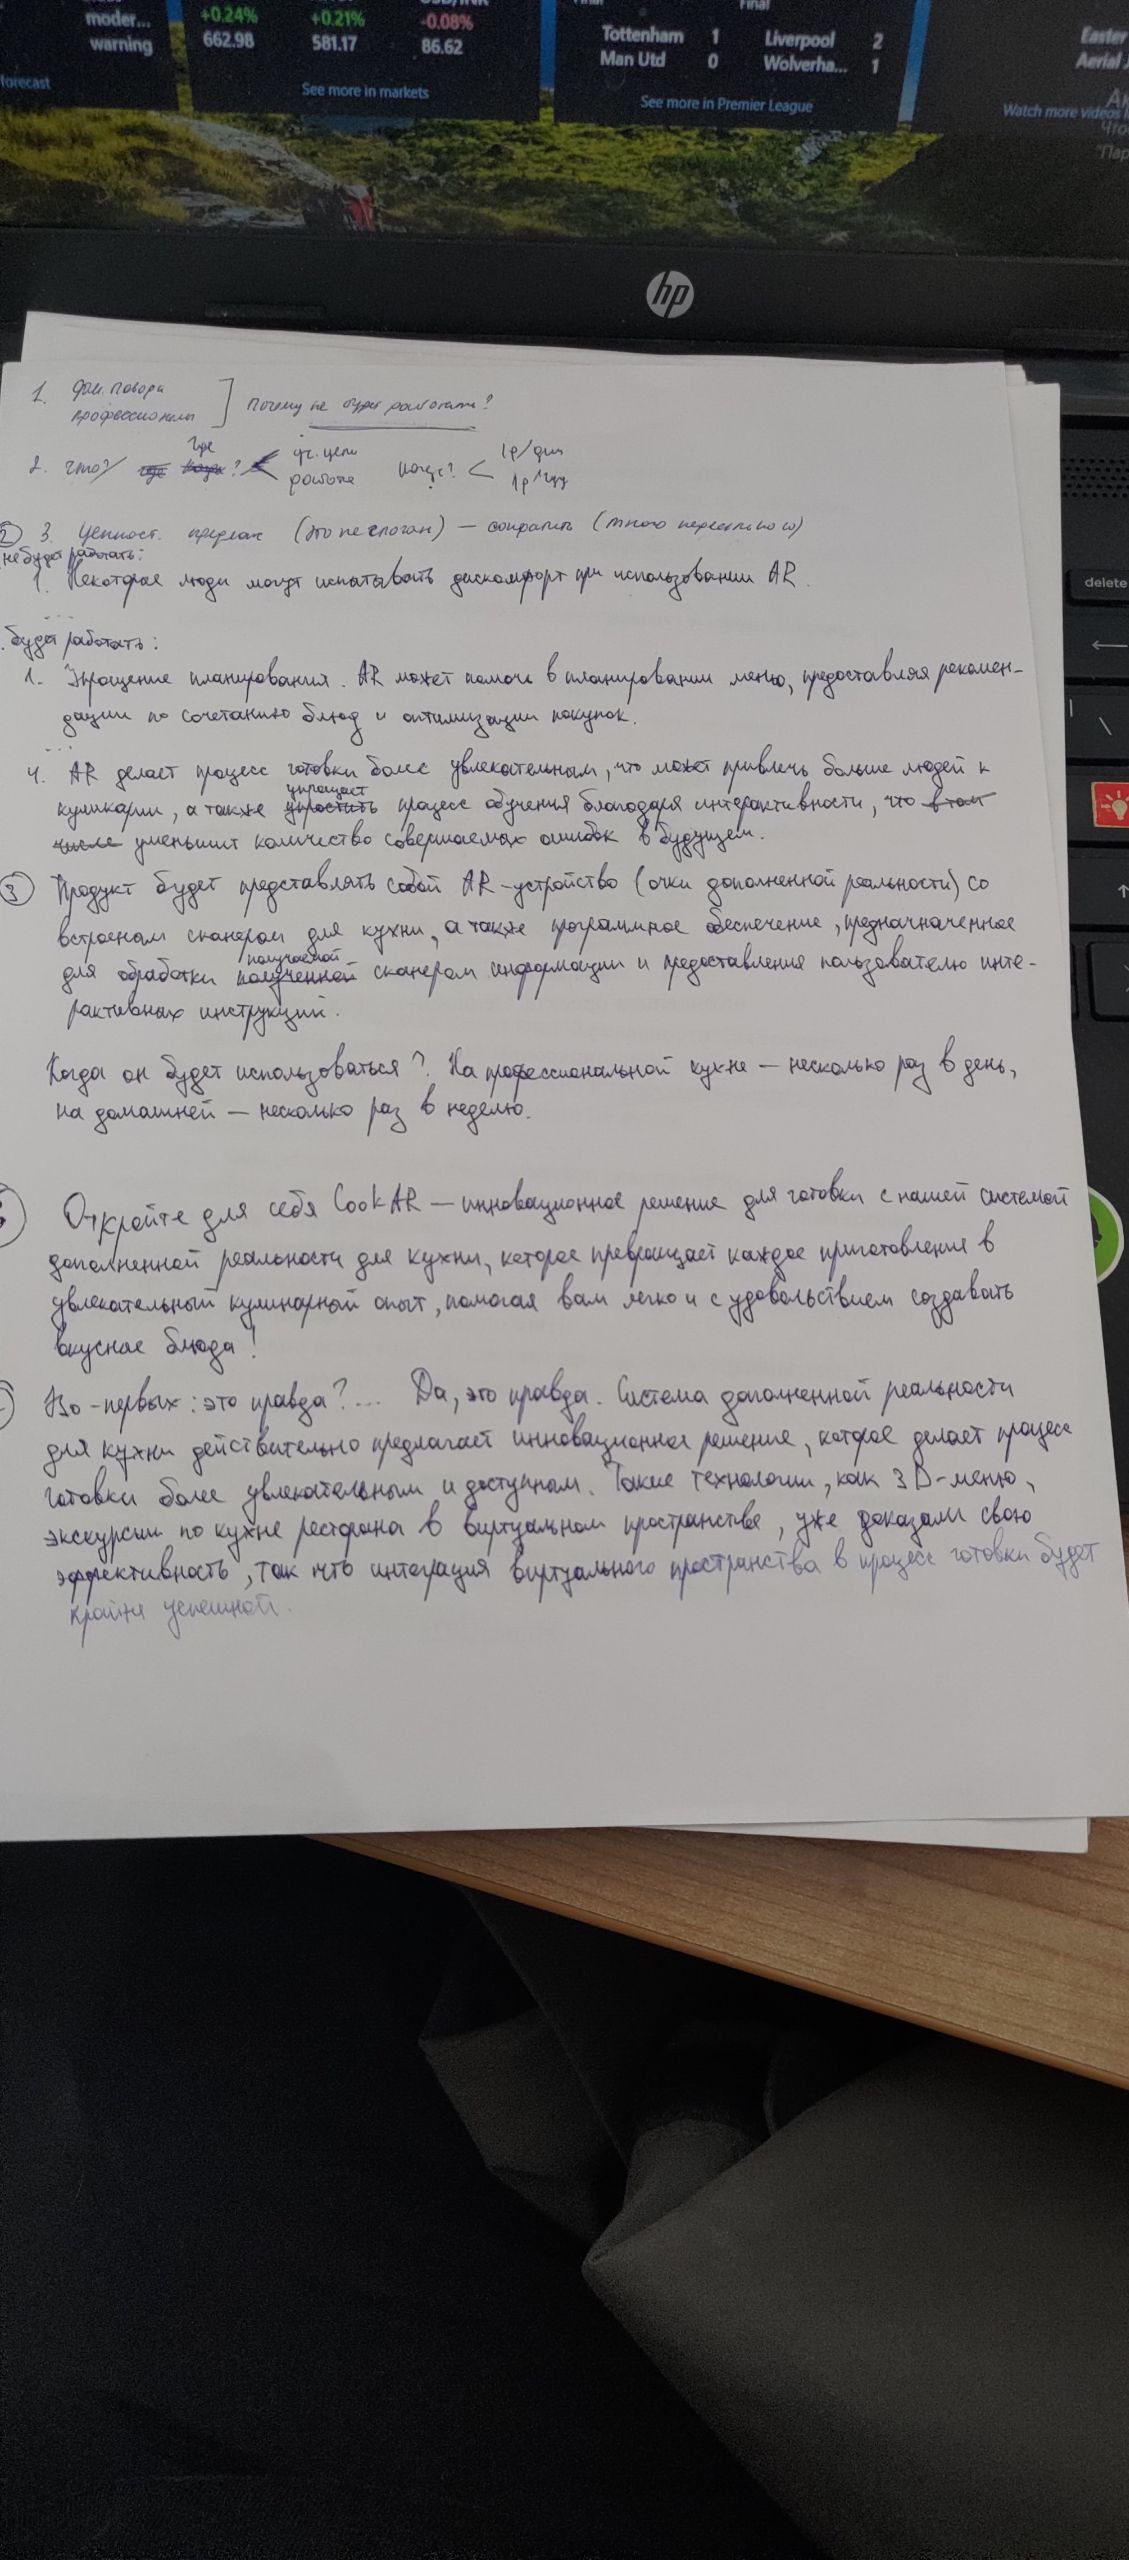 moder...
warning
forecast
+0.24%
662.98
+0.21%
581.17
USD/INR
-0.08%
86.62
See more in markets
Final
Tottenham 1
Man Utd 0
Final
Liverpool 2
Wolverha... 1
See more in Premier League
Easter
Aerial
Watch more videos
hp
delete
1. повара
профессионалы
Почему не будет работать?
2. что? где ?
работе
1р/
3. Ценност. предлож (это не слоган) — сократить
не будет работать:
1. Некоторые люди могут испытывать дискомфорт при использовании AR.
...
будет работать:
1. Упрощение планирования. AR может помочь в планировании меню, предоставляя рекомен-
дации по сочетанию блюд и оптимизации покупок.
...
4. AR делает процесс готовки более увлекательным, что может привлечь больше людей к
упрощает
кулинарии, а также упростить процесс обучения благодаря интерактивности, что в том
числе уменьшит количество совершаемых ошибок в будущем.
3 Продукт будет представлять собой AR-устройство (очки дополненной реальности) со
встроеным сканером для кухни, а также программное обеспечение, предназначенное
получаемой
для обработки полученной сканером информации и предоставления пользователю инте-
рактивных инструкций.
Когда он будет использоваться? На профессиональной кухне — несколько раз в день,
на домашней — несколько раз в неделю.
Откройте для себя CookAR — инновационное решение для готовки с нашей системой
дополненной реальности для кухни, которое превращает каждое приготовление в
увлекательный кулинарный опыт, помогая вам легко и с удовольствием создавать
вкусные блюда!
Во-первых: это правда?... Да, это правда. Система дополненной реальности
для кухни действительно предлагает инновационное решение, которое делает процесс
готовки более увлекательным и доступным. Такие технологии, как 3D-меню,
экскурсии по кухне ресторана в виртуальном пространстве, уже доказали свою
эффективность, так что интеграция виртуального пространства в процесс готовки будет
крайне успешной.